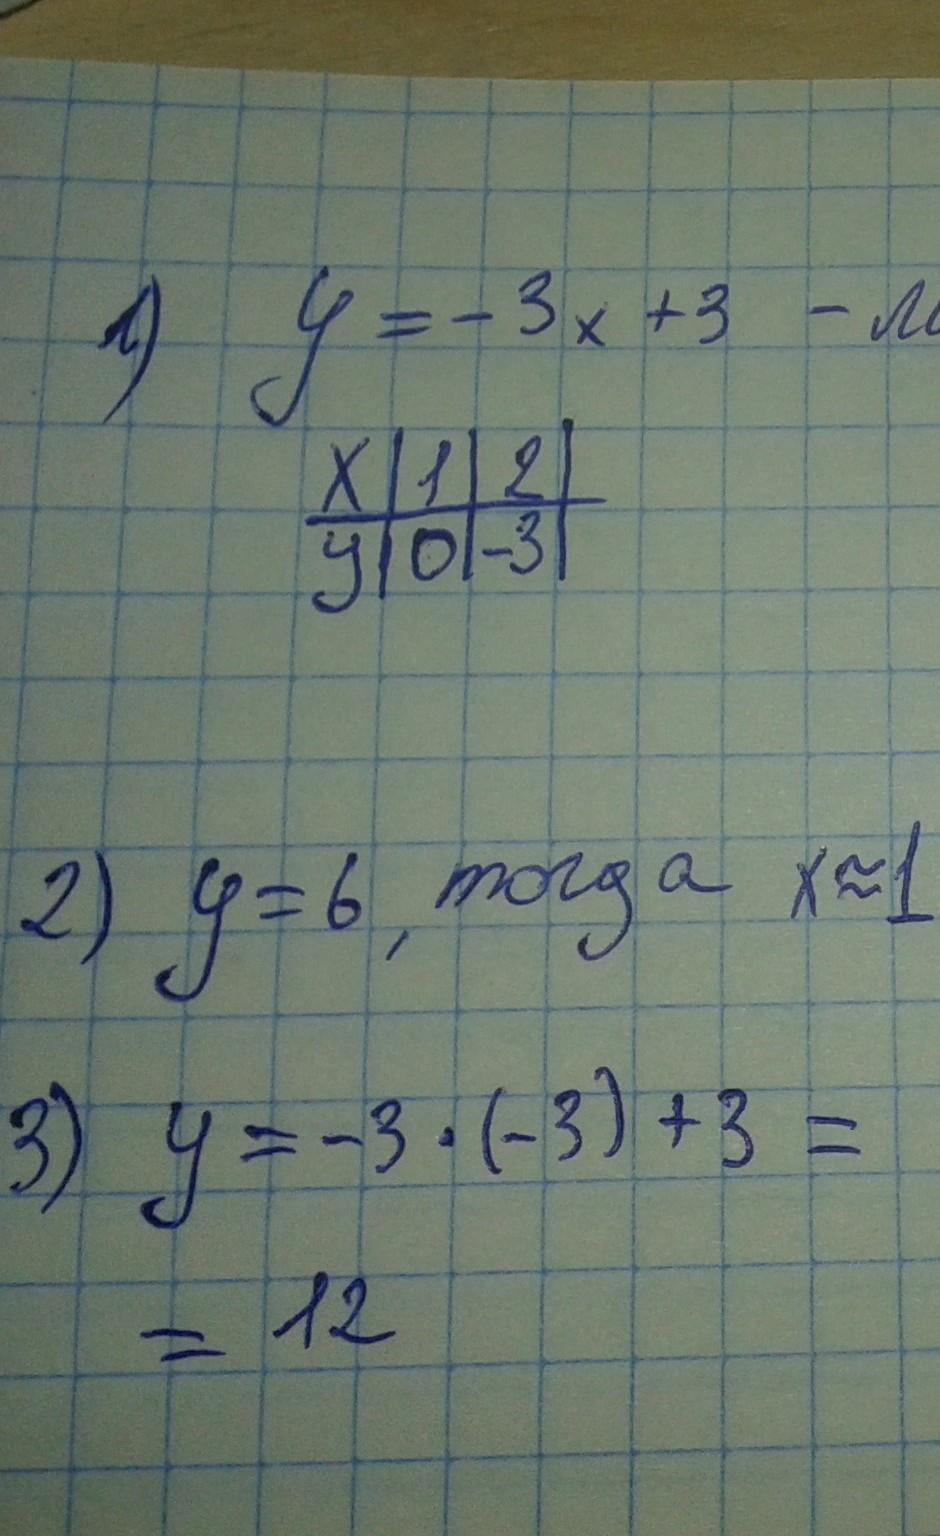 1) y = -3x +3 -
x | 1 | 2 |
y | 0 | -3 |
2) y=6, тогда x≈1
3) y = -3·(-3) +3 =
= 12